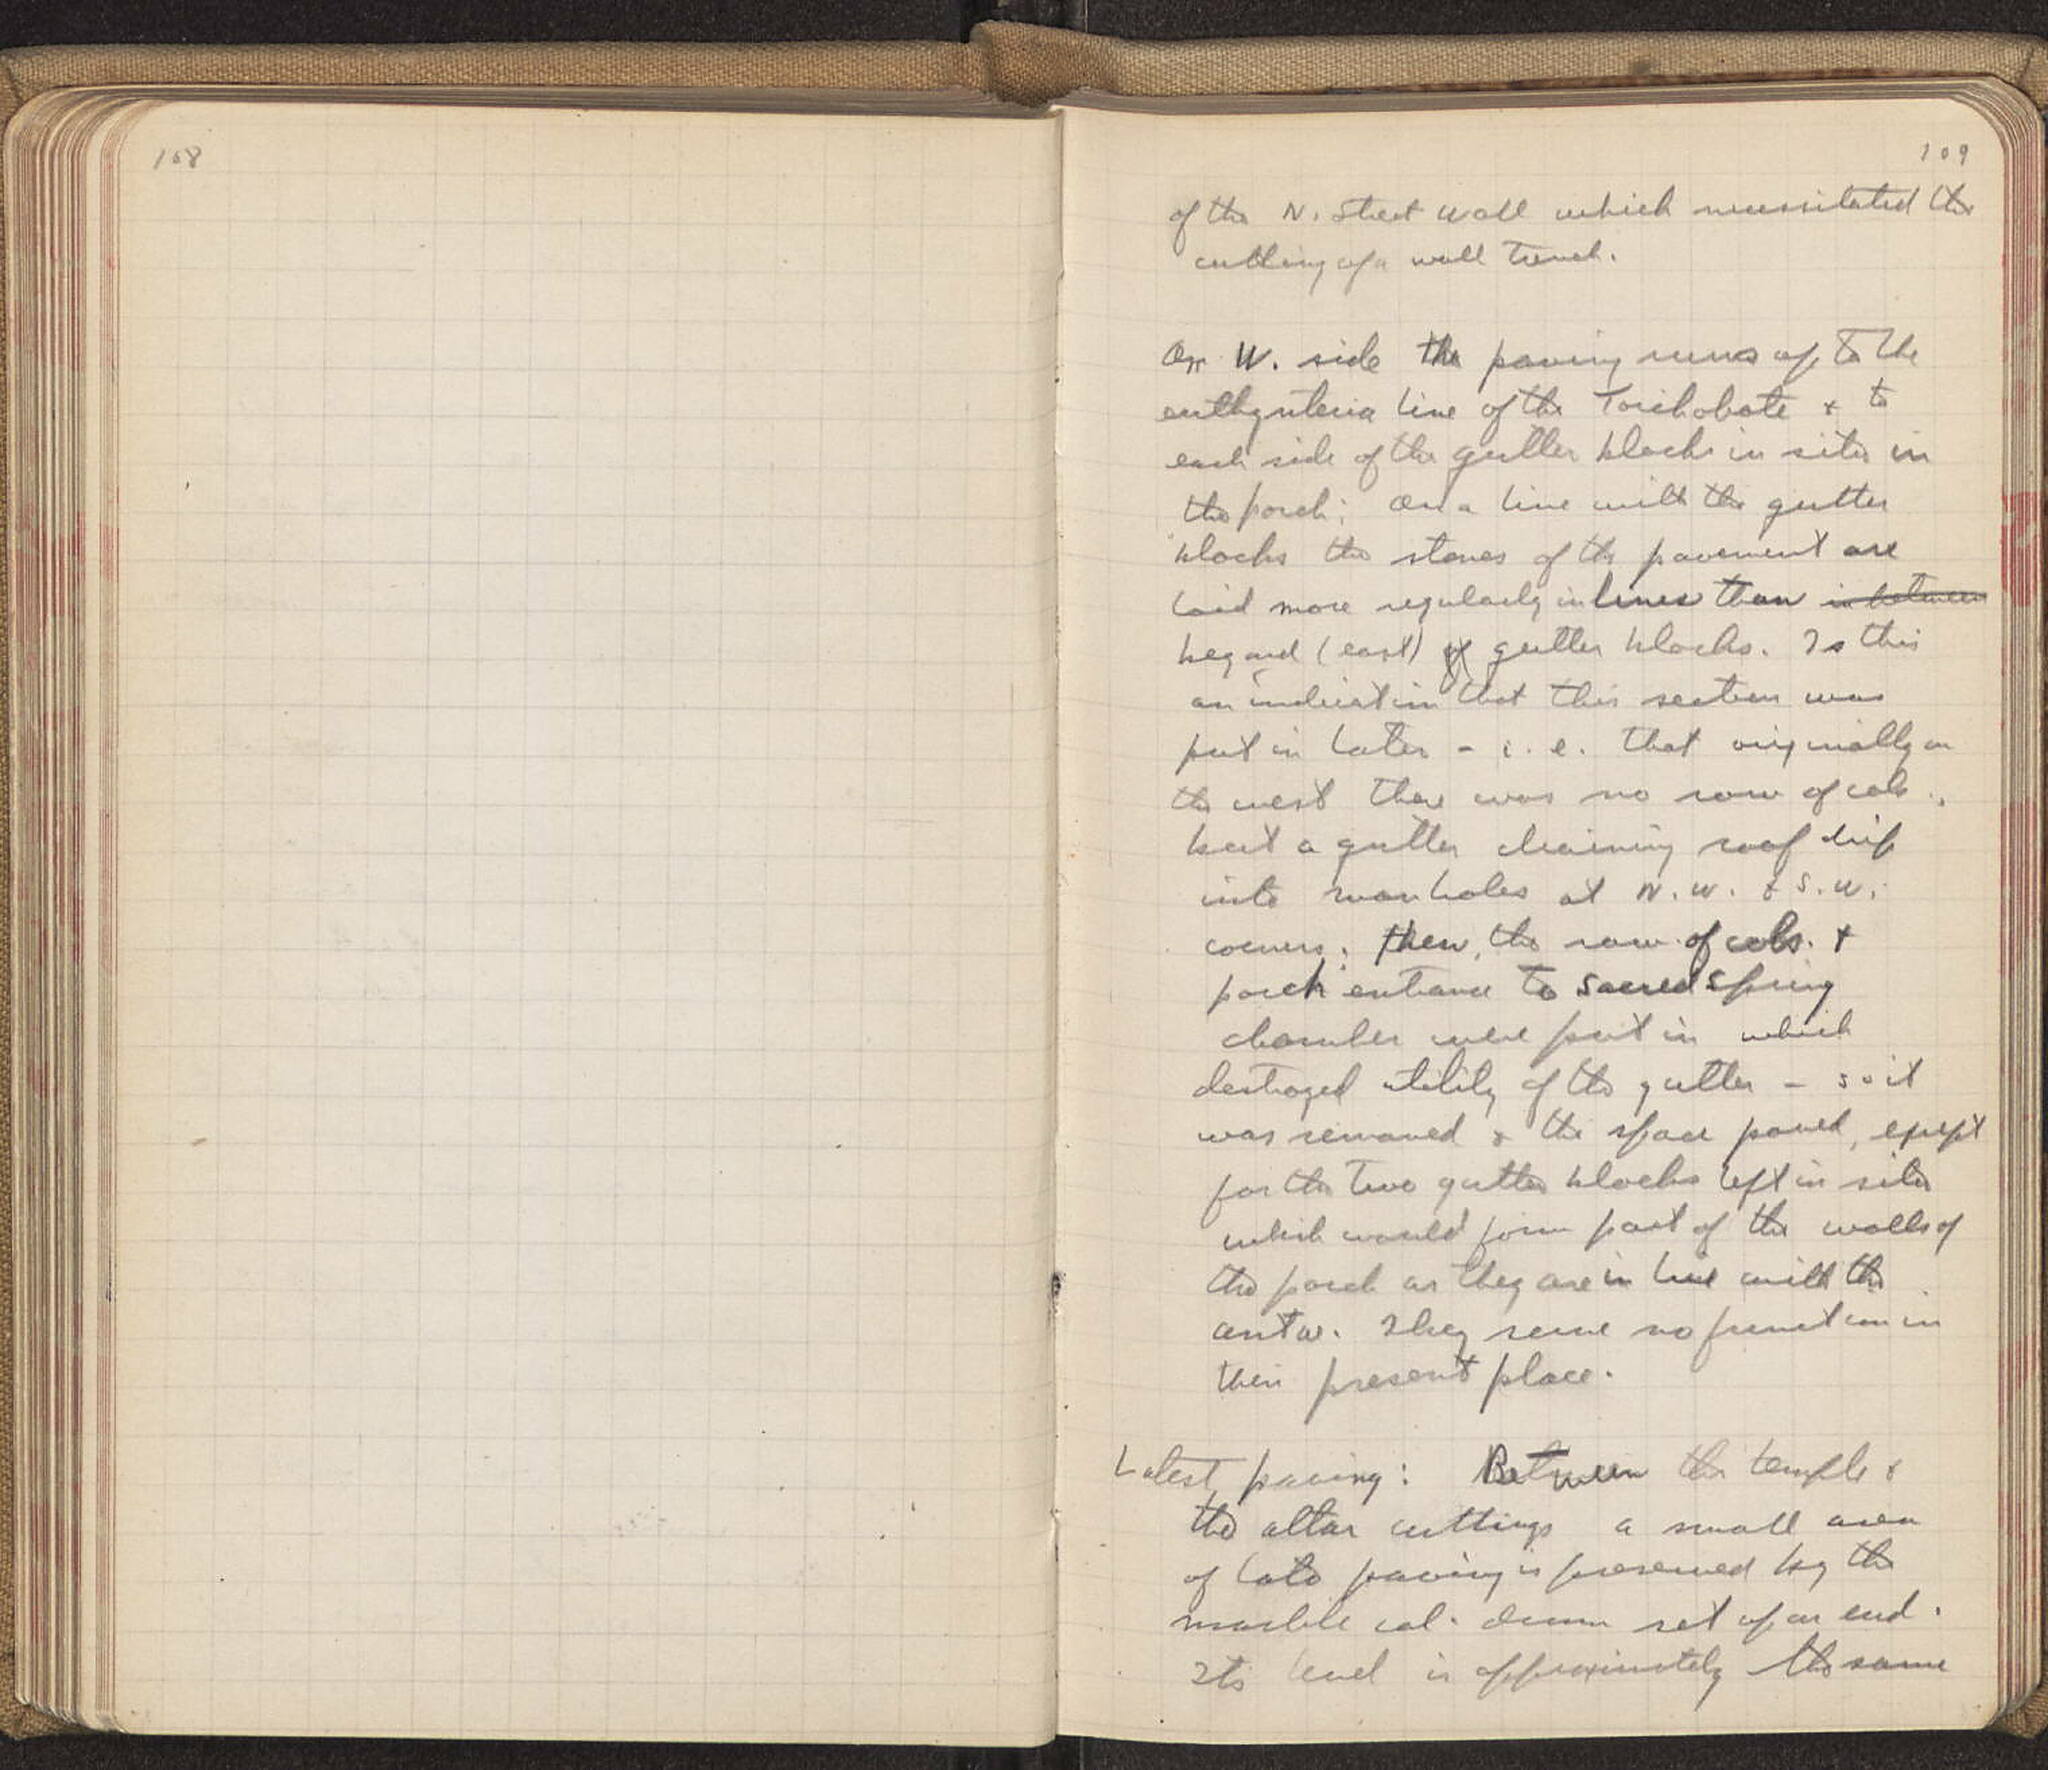 108
109
of the N. Street wall which necessitated the
cutting of a wall trench.
On W. side the paving runs up to the
euthynteria line of the Toichobate + to
each side of the gutter blocks in situ in
the porch; On a line with the gutter
blocks the stones of the pavement are
laid more regularly in lines than in between
beyond (east) of gutter blocks. Is this
an indication that this section was
put in later - i.e. that originally on
the west there was no row of cols.,
but a gutter draining roof drip
into manholes at N.W. + S.W.
corners. Then, the row of cols. +
porch entrance to Sacred Spring
chamber were put in which
destroyed utility of the gutter - so it
was removed + the space paved, except
for the two gutter blocks left in situ
which would form part of the walls of
the porch as they are in line with the
antae. They serve no function in
their present place.
Latest paving: Between the temple +
the altar cuttings a small area
of late paving is preserved by the
marble col. drum set up on end.
Its level is approximately the same